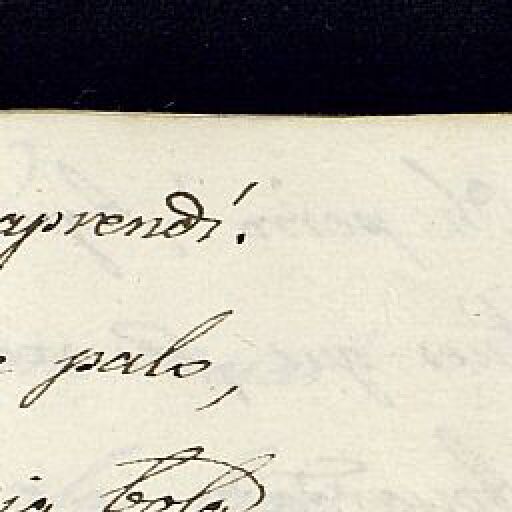 aprendí.
palo,
bola